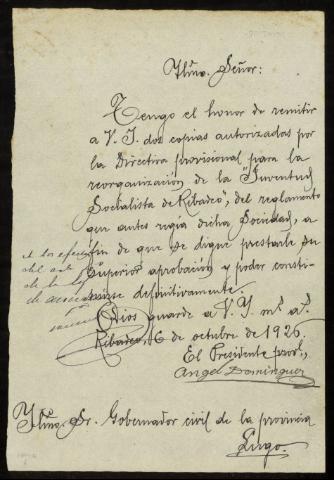 Iltmo. Señor:
Tengo el honor de remitir
a V. I. dos copias autorizadas por
la Directiva provisional para la
reorganización de la "Juventud
Socialista de Ribadeo", del reglamento
que antes regía dicha Sociedad, a
fin de que se digne prestarle su
superior aprobación y poder consti-
tuirse definitivamente.
Dios guarde a V. I. ms. as.
Ribadeo, 6 de octubre de 1926.
El Presidente provl.,
Angel Dominguez
A los efectos
del art.
de la ley
de asociac
Iltmo. Sr. Gobernador civil de la provincia
Lugo.